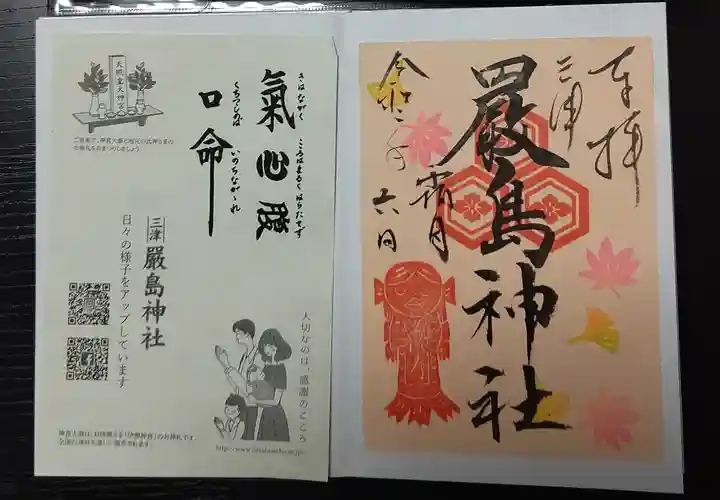 奉拝
三津
嚴島神社
令和二年
霜月
六日
天照皇大神宮
氣心腹
口命
きはながく
こころはまるく はらたてず
くちつつしめば
いのちながゝれ
三津
嚴島神社
日々の様子をアップしています
大切なのは、感謝のこころ